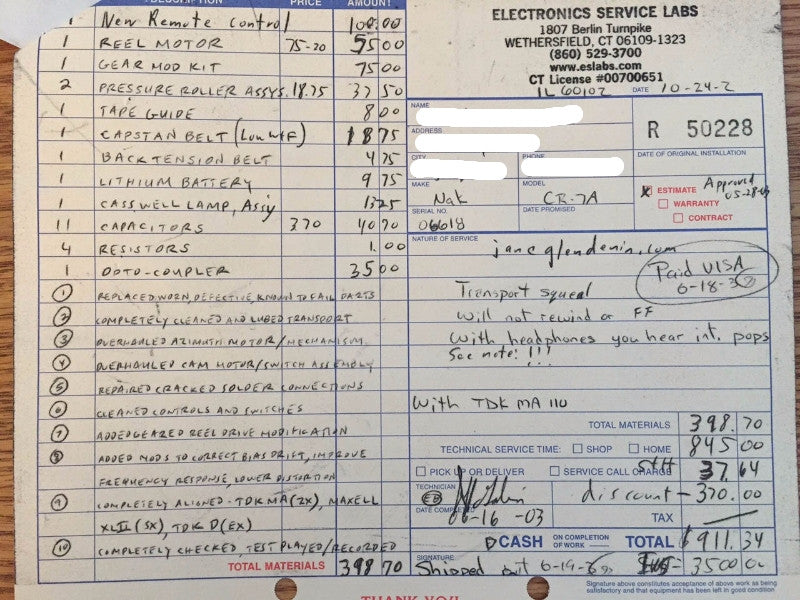 DESCRIPTION PRICE AMOUNT
1 New Remote control 100.00
1 REEL MOTOR 75-20 55 00
1 GEAR MOD KIT 75 00
2 PRESSURE ROLLER ASSYS. 18.75 37 50
1 TAPE GUIDE 8 00
1 CAPSTAN BELT (Low W+F) 18 75
1 BACK TENSION BELT 4 75
1 LITHIUM BATTERY 9 75
1 CASSWELL LAMP, Assy 13 25
11 CAPACITORS 370 40 70
4 RESISTORS 1.00
1 OPTO-COUPLER 35 00
① REPLACED WORN, DEFECTIVE, KNOWN TO FAIL PARTS
② COMPLETELY CLEANED AND LUBED TRANSPORT
③ OVERHAULED AZIMUTH MOTOR/MECHANISM
④ OVERHAULED CAM MOTOR/SWITCH ASSEMBLY
⑤ REPAIRED CRACKED SOLDER CONNECTIONS
⑥ CLEANED CONTROLS AND SWITCHES
⑦ ADDED GEARED REEL DRIVE MODIFICATION
⑧ ADDED MODS TO CORRECT BIAS DRIFT, IMPROVE
FREQUENCY RESPONSE, LOWER DISTORTION
⑨ COMPLETELY ALIGNED - TDK MA (ZX), MAXELL
XLII (SX), TDK D (EX)
⑩ COMPLETELY CHECKED, TEST PLAYED/RECORDED
TOTAL MATERIALS 398 70
THANK YOU
ELECTRONICS SERVICE LABS
1807 Berlin Turnpike
WETHERSFIELD, CT 06109-1323
(860) 529-3700
www.eslabs.com
CT License #00700651
IL 60102 DATE 10-24-2
NAME
ADDRESS
R 50228
CITY PHONE
DATE OF ORIGINAL INSTALLATION
MAKE MODEL
Nak CR-7A
X ESTIMATE Approved 05-28-03
WARRANTY
CONTRACT
SERIAL NO. DATE PROMISED
06618
NATURE OF SERVICE
janeglendenin.com
Paid VISA
6-18-
Transport squeal
Will not rewind or FF
With headphones you hear int. pops
See note! !!!
With TDK MA 110
TOTAL MATERIALS 398.70
TECHNICAL SERVICE TIME: SHOP HOME 845 00
PICK UP OR DELIVER SERVICE CALL CHARGE S+H 37.64
TECHNICIAN
discount - 370.00
DATE COMPLETED
06-16-03
TAX
CASH ON COMPLETION OF WORK TOTAL $911.34
SIGNATURE
Shipped out 6-19- 3500
Signature above constitutes acceptance of above work as being
satisfactory and that equipment has been left in good condition